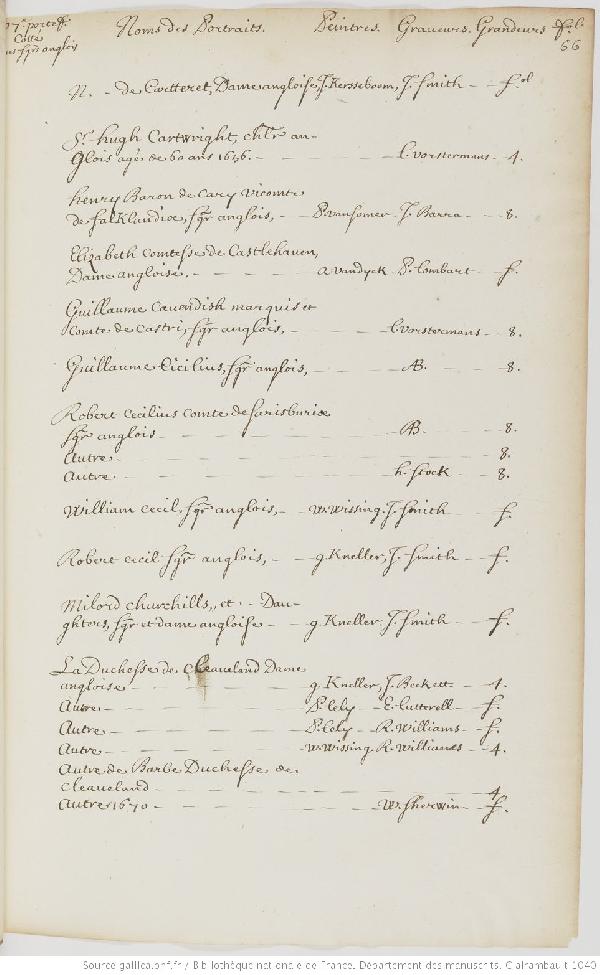 7e porteff. Noms des Portraits. Peintres. Graueurs. Grandeurs fol.
Cotte 66
sgr anglois
N. - de Carteret, Dame angloise, J. Kersseboom, J. Smith - fol
Sr. hugh Cartwright, chlr an-
glois agé de 60 ans 1656. - L. Vorstermans - 4.
henry Baron de Cary Vicomte
de falklandiae, sgr anglois, - P. vansomer - J. Barra - 8.
Elizabeth Comtesse de Castlehauen,
Dame angloise. - A Vandyck P. Lombart - f.
Guillaume Cauendish marquis et
Comte de Castri, sgr anglois, - L. Vorstermans - 8.
Guillaume Cicilius, sgr anglois, - AB. - 8.
Robert Cecilius Comte de Sarisburiae
sgr anglois - AB. - 8.
Autre - 8.
Autre - h. Stock - 8.
William Cecil, sgr anglois, - W. Wissing. J. Smith - f.
Robert Cecil sgr anglois, - g. Kneller, J. Smith - f.
Milord churchills, et - Dau-
ghters, sgr et dame angloise - g. Kneller, J. Smith - f.
La Duchesse de Cleaueland Dame
angloise - g. Kneller, J. Beckett - 4.
Autre - P. Lely - E. Lutterell - f.
Autre - P. Lely - R. Williams - f.
Autre - W. Wissing R. Williams - 4.
Autre de Barbe Duchesse de
Cleaueland - 4.
Autre 1670 - W. Sherwin - f.
Source gallica.bnf.fr / Bibliothèque nationale de France. Département des manuscrits. Clairambault 1040